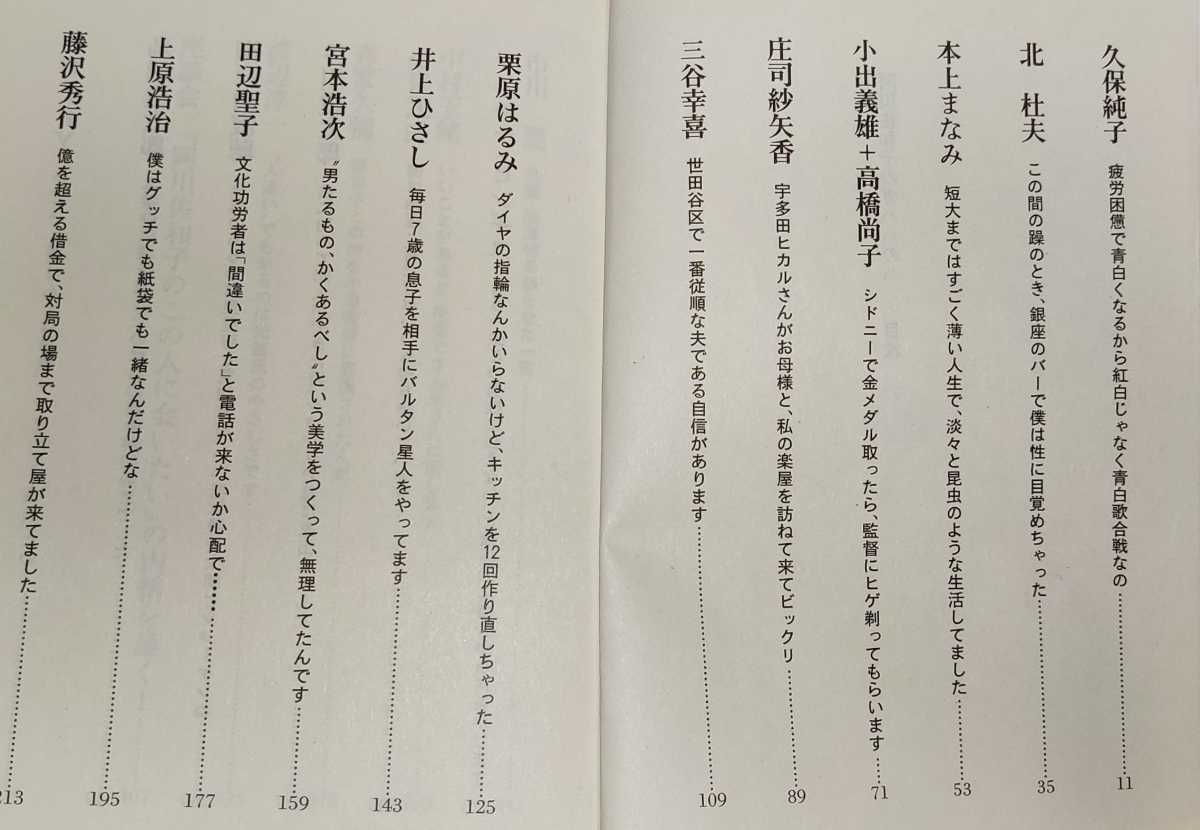 久保純子 疲労困憊で青白くなるから紅白じゃなく青白歌合戦なの……………… 11
北 杜夫 この間の躁のとき、銀座のバーで僕は性に目覚めちゃった……………… 35
本上まなみ 短大まではすごく薄い人生で、淡々と昆虫のような生活してました……… 53
小出義雄+高橋尚子 シドニーで金メダル取ったら、監督にヒゲ剃ってもらいます…… 71
庄司紗矢香 宇多田ヒカルさんがお母様と、私の楽屋を訪ねて来てビックリ………… 89
三谷幸喜 世田谷区で一番従順な夫である自信があります……………………… 109
栗原はるみ ダイヤの指輪なんかいらないけど、キッチンを12回作り直しちゃった…… 125
井上ひさし 毎日7歳の息子を相手にバルタン星人をやってます……………… 143
宮本浩次 〝男たるもの、かくあるべし〟という美学をつくって、無理してたんです…… 159
田辺聖子 文化功労者は「間違いでした」と電話が来ないか心配で……………… 177
上原浩治 僕はグッチでも紙袋でも一緒なんだけどな……………………… 195
藤沢秀行 億を超える借金で、対局の場まで取り立て屋が来てました……………… 213